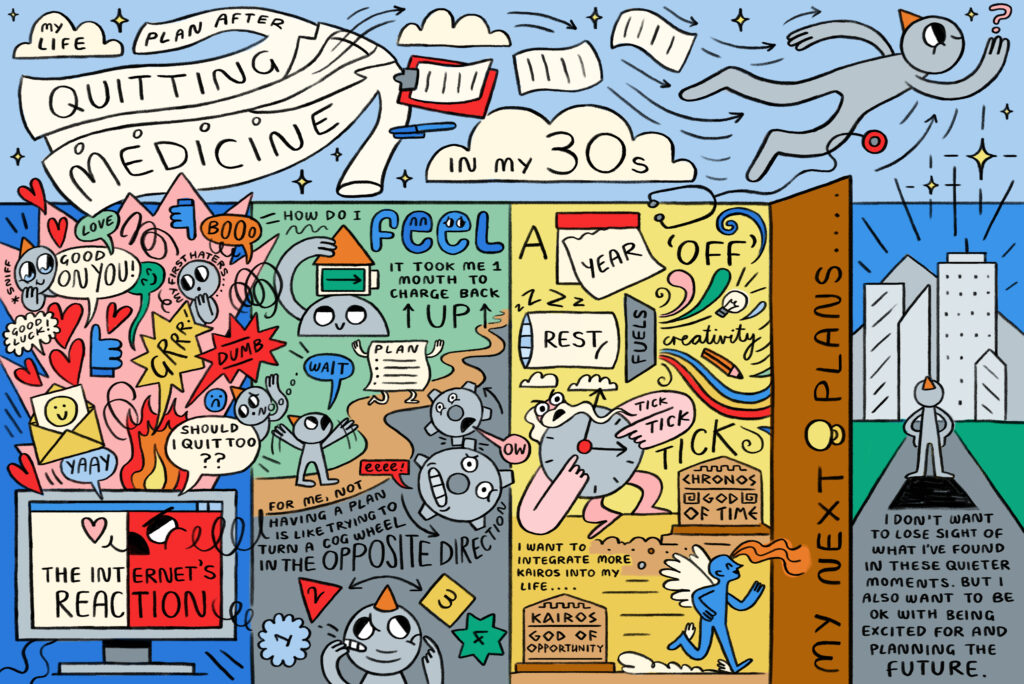 MY
LIFE
PLAN AFTER
QUITTING
MEDICINE
IN MY 30s
?
LOVE
BOOO
*SNIFF
GOOD
ON YOU!
MY FIRST HATERS...
GOOD
LUCK!
GRRR!
DUMB
NOO
YAAY
SHOULD
I QUIT TOO
??
THE INTERNET'S
REACTION
HOW DO I
FEEL
IT TOOK ME 1
MONTH TO
CHARGE BACK
UP
WAIT
PLAN
OW
eeee!
FOR ME, NOT
HAVING A PLAN
IS LIKE TRYING TO
TURN A COG WHEEL
IN THE OPPOSITE DIRECTION
1
2
3
4
A
YEAR
'OFF'
ZZZZ
REST
FUELS
creativity
TICK
TICK
TICK
CHRONOS
GOD
OF TIME
I WANT TO
INTEGRATE MORE
KAIROS INTO MY
LIFE....
KAIROS
GOD OF
OPPORTUNITY
MY NEXT PLANS.....
I DON'T WANT
TO LOSE SIGHT OF
WHAT I'VE FOUND
IN THESE QUIETER
MOMENTS. BUT I
ALSO WANT TO BE
OK WITH BEING
EXCITED FOR AND
PLANNING THE
FUTURE.